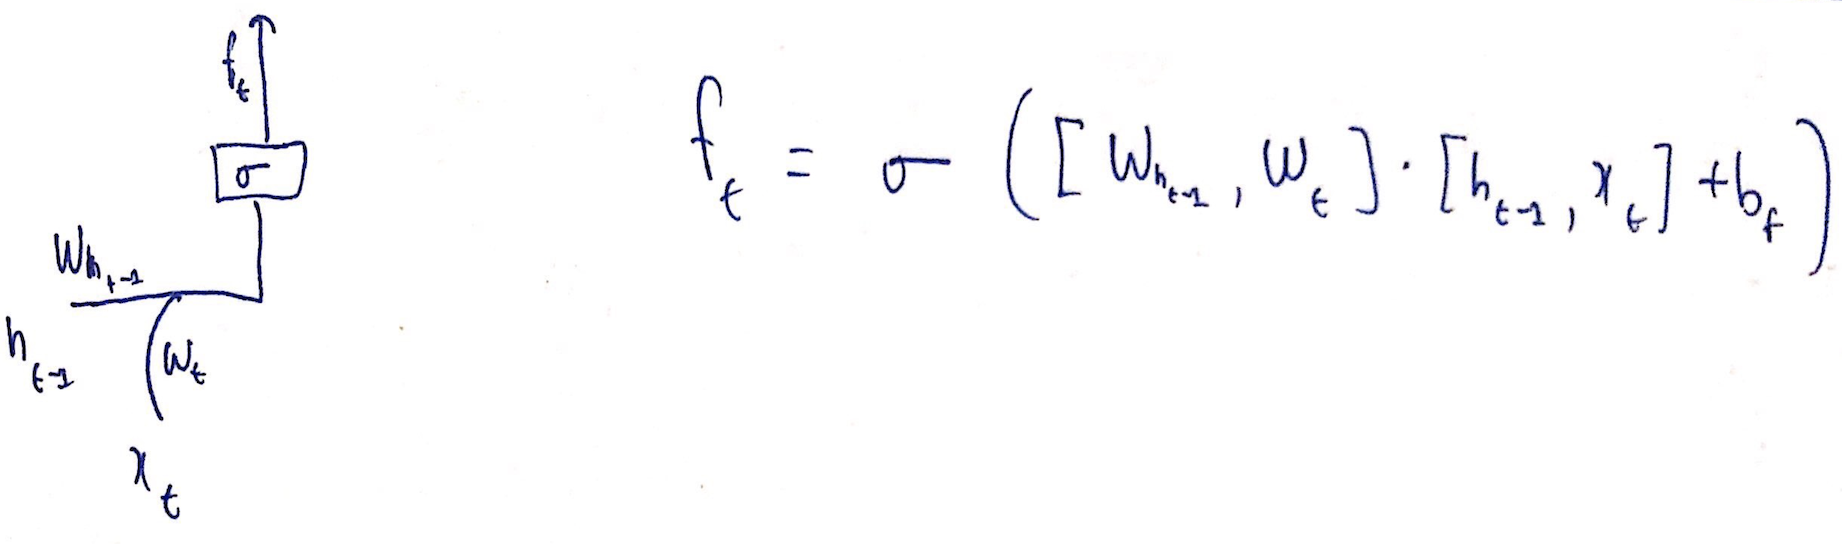 f_t
σ
W_{h_{t-1}}
h_{t-1}
W_t
x_t
f_t = σ ([W_{h_{t-1}}, W_t] · [h_{t-1}, x_t] + b_f)